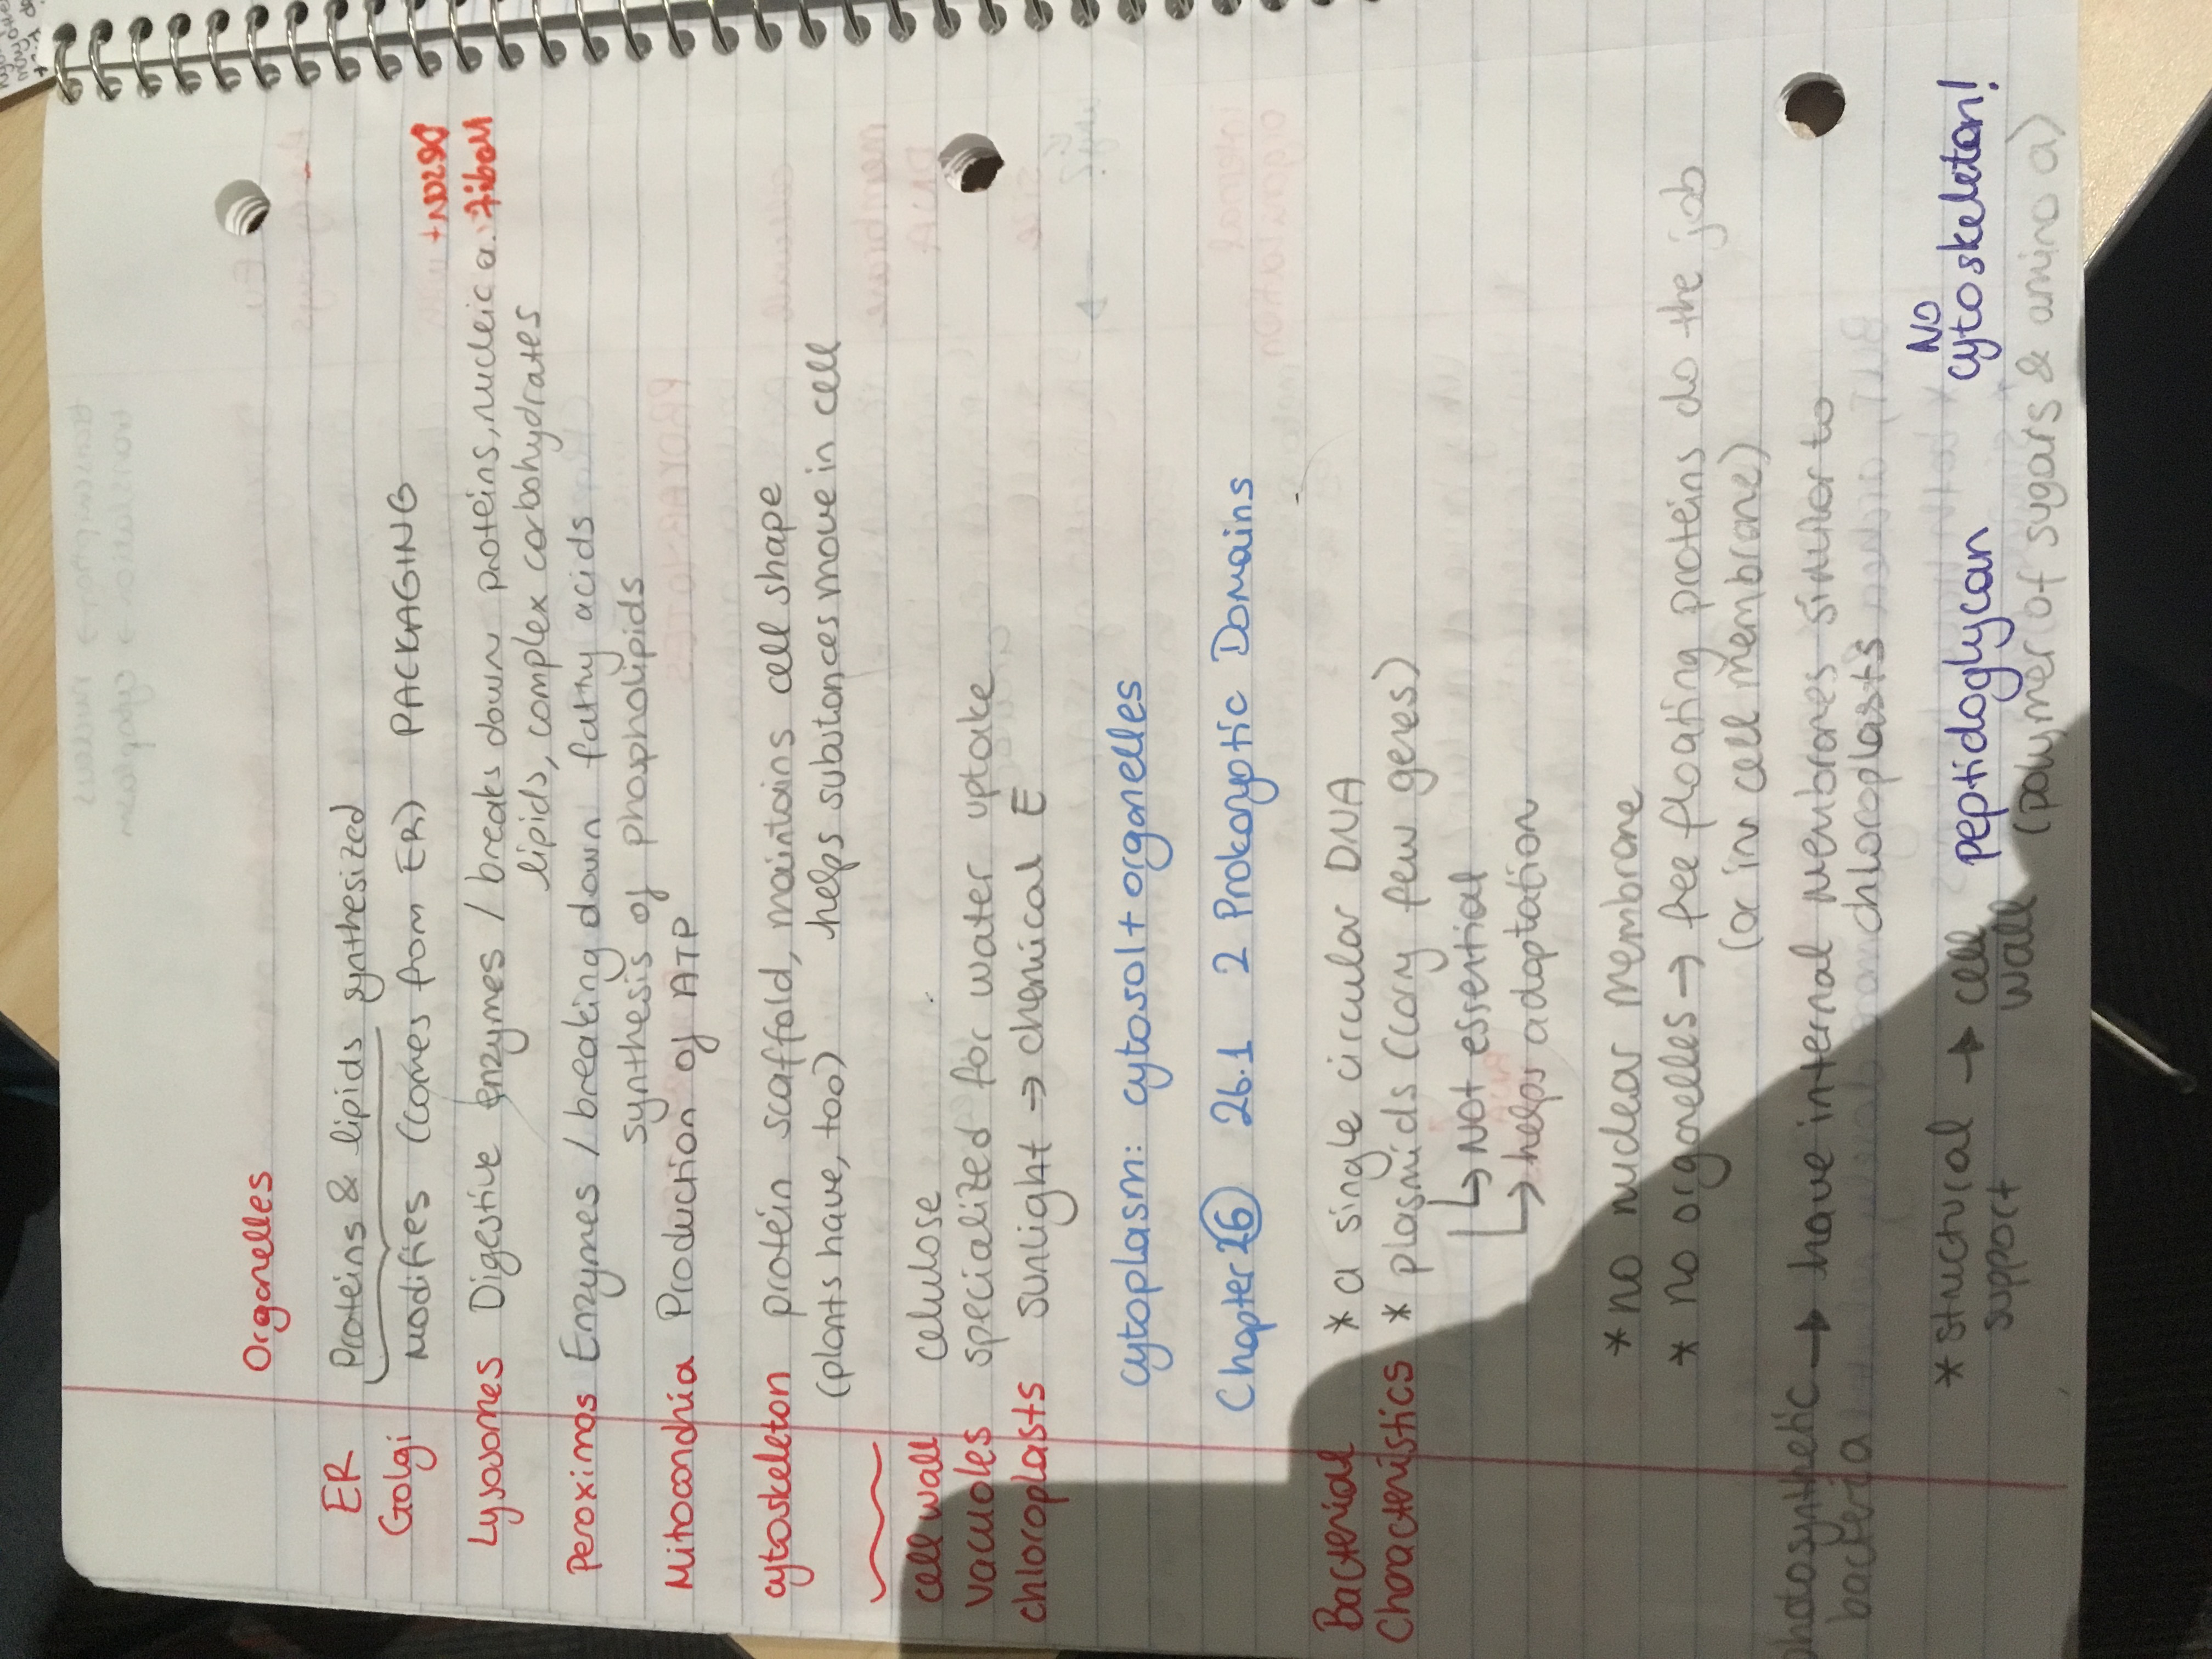 Organelles
ER Proteins & lipids synthesized
Golgi Modifies (comes from ER) PACKAGING
Lysosomes Digestive enzymes / breaks down proteins, nucleic a.
lipids, complex carbohydrates
Peroximos Enzymes / breaking down fatty acids
synthesis of phospholipids
Mitocondria Production of ATP
cytoskeleton protein scaffold, maintains cell shape
(plants have, too) helps substances move in cell
cell wall cellulose
vacuoles specialized for water uptake
chloroplasts sunlight → chemical E
cytoplasm: cytosol + organelles
Chapter 26 26.1 2 Prokaryptic Domains
Bacterial * a single circular DNA
Characteristics * plasmids (carry few genes)
↳ Not essential
↳ helps adaptation
* no nuclear membrane
* no organelles → free floating proteins do the job
(or in cell membrane)
photosynthetic → have internal membranes similar to
bacteria chloroplasts
* structural → cell peptidoglycan NO
support wall cytoskeleton!
(polymer of sygars & amino a)